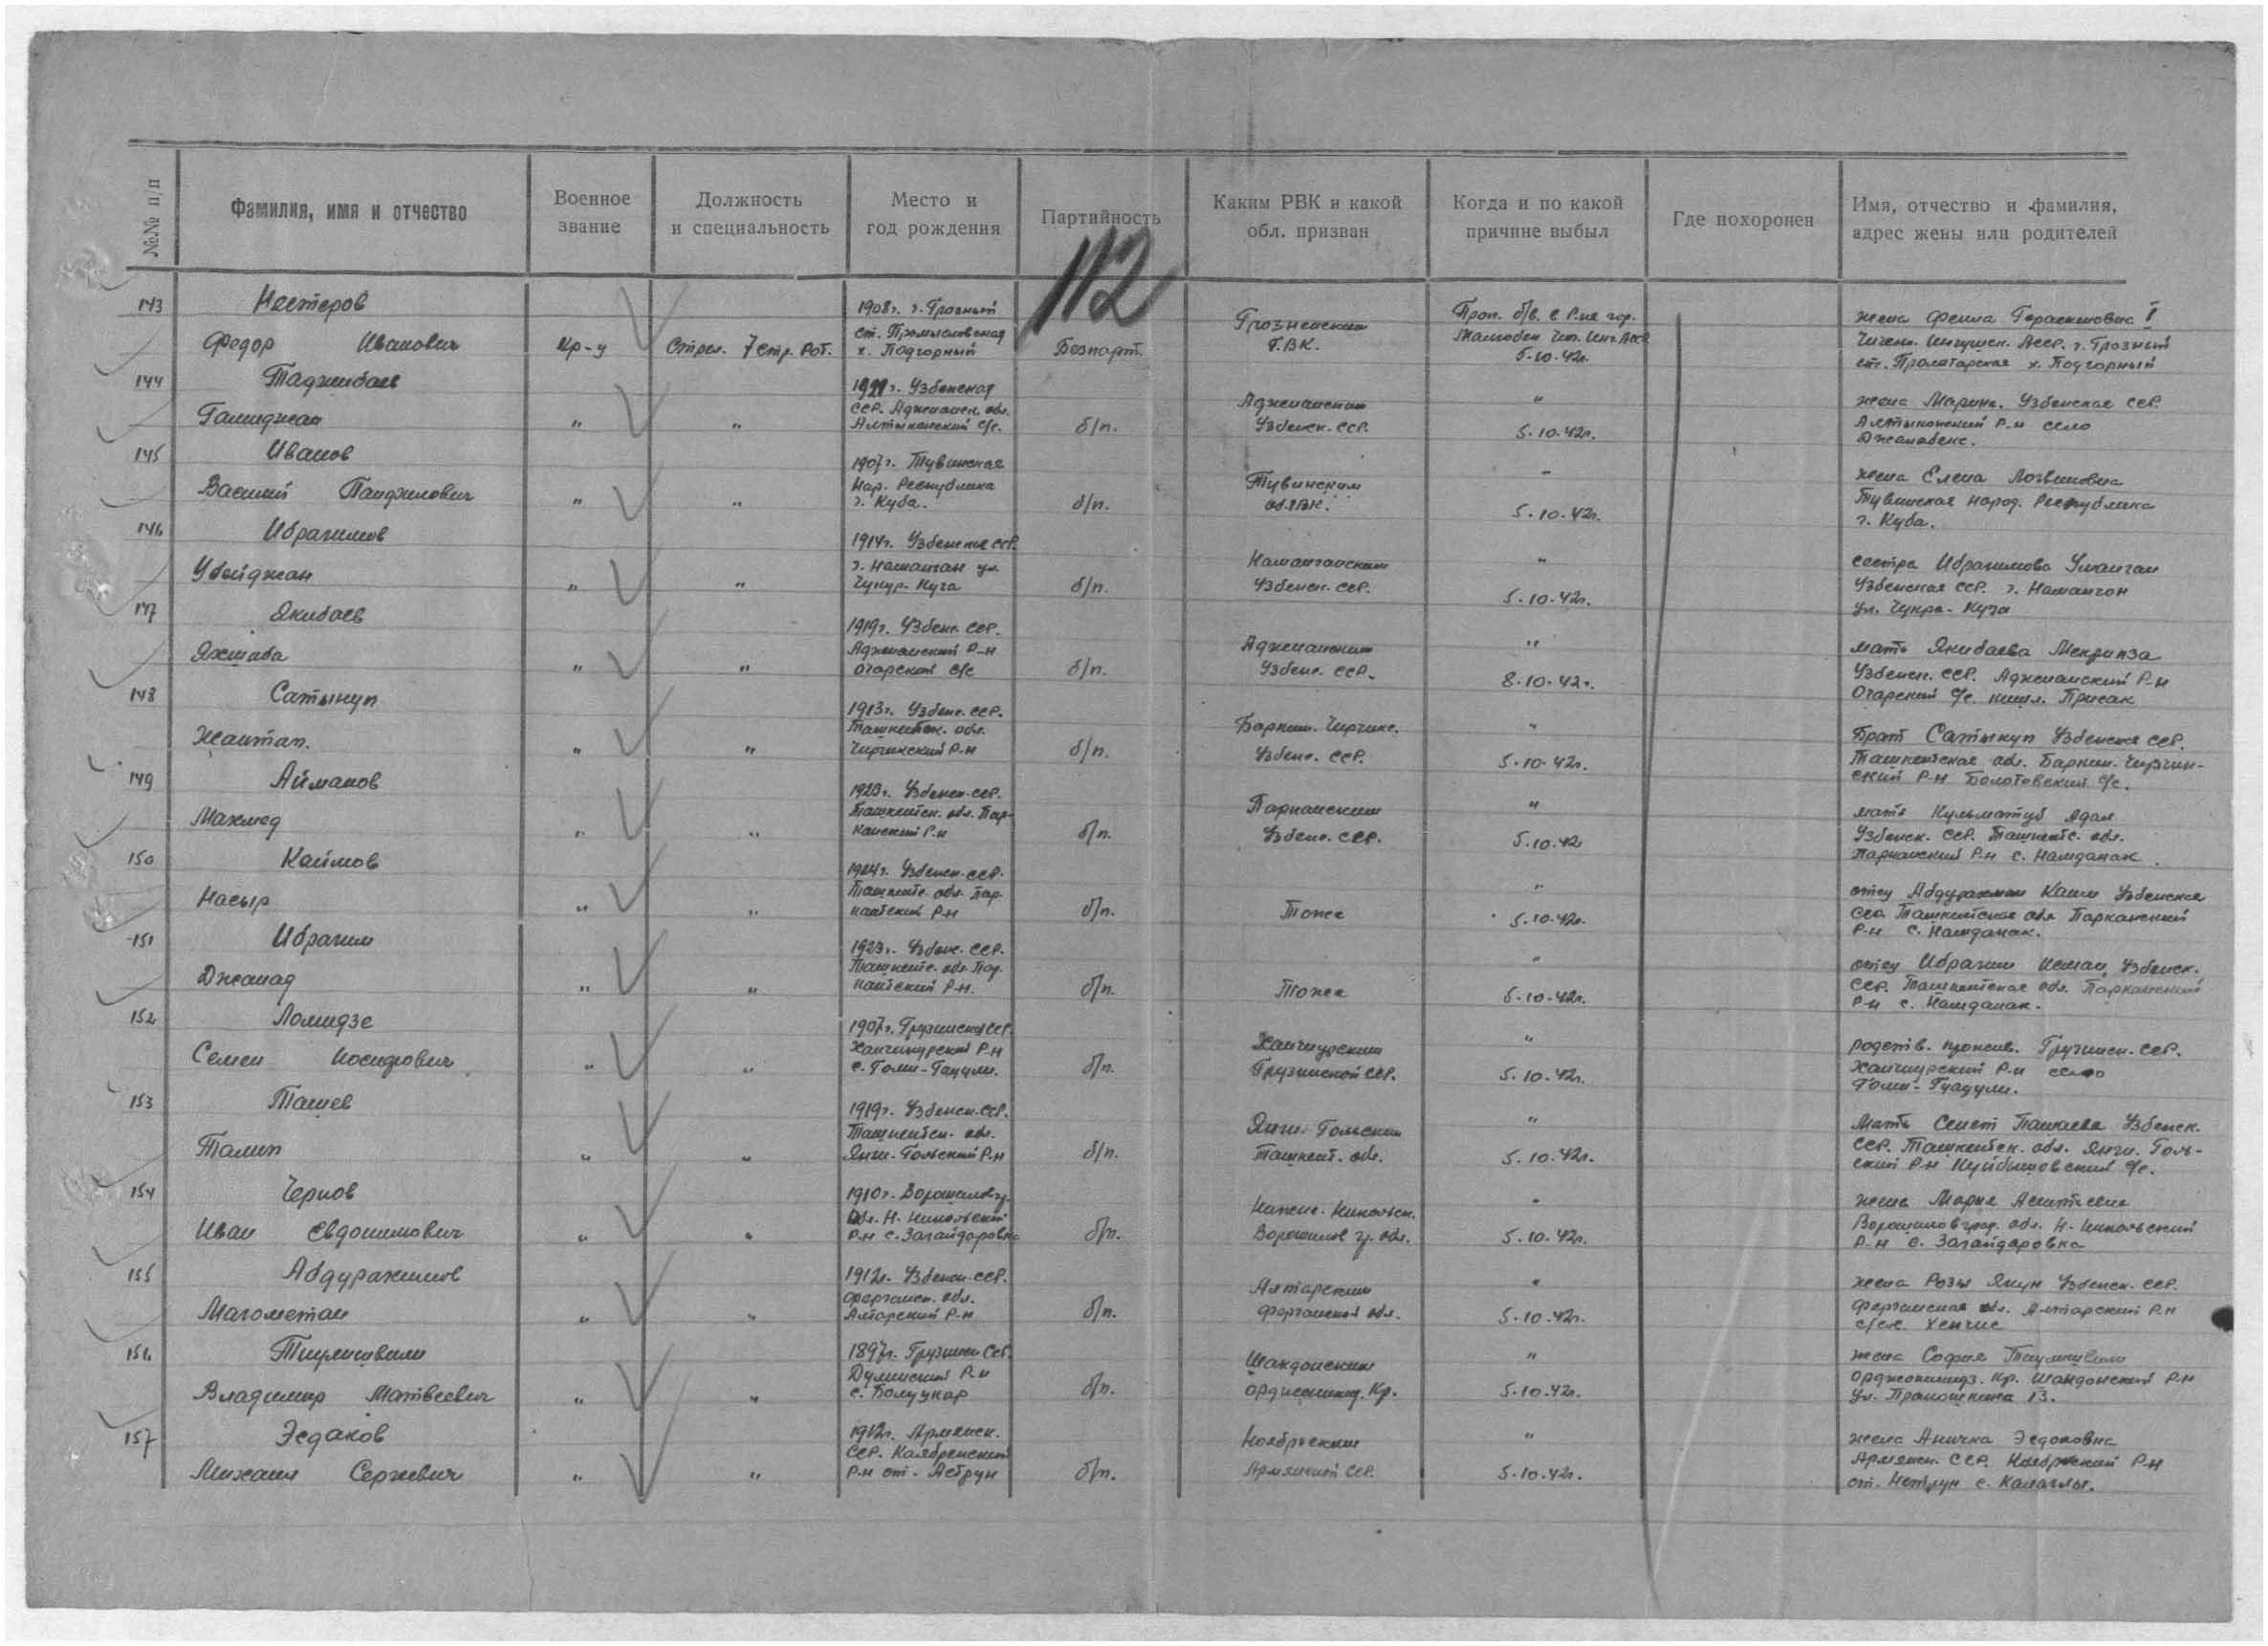 №№ п/п
Фамилия, имя и отчество
Военное
звание
Должность
и специальность
Место и
год рождения
Партийность
Каким РВК и какой
обл. призван
Когда и по какой
причине выбыл
Где похоронен
Имя, отчество и фамилия,
адрес жены или родителей
112
143
Нестеров
Федор Иванович
Кр-ц
Стрел. 7 стр. рот.
1908г. г. Грозный
ст. Промысловская
х. Подгорный
Безпарт.
Грозненским
Г.В.К.
Проп. б/в. в Р-не гор.
5-10-42г.
жена Герасимовна
Чечено. Ингушск. Асср. г. Грозный
х. Подгорный
144
Таджибаев
Галиджан
"
"
Узбекская
ССР. Аджнанск. обл.
Алтынканский с/с.
б/п.
Аджнанским
Узбекск. ССР.
"
5-10-42г.
жена Марине. Узбекская ССР.
Р-н село
145
Иванов
Василий Панфилович
"
"
1907г. Тувинская
Нар. Республика
г. Куба.
б/п.
Тувинским
"
5-10-42г.
жена Елена Логвиновна
Тувинская народ. Республика
г. Куба.
146
Ибрагимов
Убайджан
"
"
1914г. Узбекская ССР.
г. Наманган ул.
Чукур-Куча
б/п.
Наманганским
Узбекск. ССР.
"
5-10-42г.
сестра Ибрагимова
Узбекская ССР. г. Наманган
ул. Чукра-Куча
147
Якибаев
Яхшаба
"
"
1919г. Узбек. ССР.
Аджнанский Р-н
Очарский с/с
б/п.
Аджнанским
Узбек. ССР.
"
8-10-42г.
мать Якибаева
Узбекск. ССР. Аджнанский Р-н
Очарский с/с. кишл. Присак
148
Сатынкуп
Жантап.
"
"
1913г. Узбек. ССР.
Ташкентск. обл.
Чирчикский Р-н
б/п.
Узбек. ССР.
"
5-10-42г.
Брат Сатынкуп Узбекская ССР.
Ташкентская обл.
ский Р-н Болотовский с/с.
149
Айманов
Махмед
"
"
1923г. Узбекск. ССР.
Ташкентск. обл. Пар-
канский Р-н
б/п.
Парканским
Узбек. ССР.
"
5-10-42
мать Адал
Узбекск. ССР. Ташкентс. обл.
Парканский Р-н с. Намданак.
150
Каимов
Насыр
"
"
1924г. Узбекск. ССР.
Ташкентс. обл. Пар-
кантский Р-н
б/п.
Тоже
"
5-10-42г.
отец Абдурахман Каим Узбекская
ССР. Ташкентская обл. Парканский
Р-н с. Намданак.
151
Ибрагим
Джамад
"
"
1923г. Узбекс. ССР.
Ташкентс. обл. Пар-
кантский Р-н.
б/п.
Тоже
"
5-10-42г.
отец Ибрагим Исман Узбекск.
ССР. Ташкентская обл. Парканский
Р-н с. Намданак.
152
Ломидзе
Семен Иосифович
"
"
1907г. Грузинской ССР.
Ханчиурский Р-н
б/п.
Ханчиурским
Грузинской ССР.
"
5-10-42г.
родств. прожив. Грузинск. ССР.
Ханчиурский Р-н село
153
Ташев
Талип
"
"
1919г. Узбекск. ССР.
Ташкентск. обл.
Янги-Гольский Р-н
б/п.
Янги-Гольским
Ташкент. обл.
"
5-10-42г.
Мать Узбекск.
ССР. Ташкентск. обл. Янги-Голь-
ский Р-н Куйбышевский с/с.
154
Чернов
Иван Евдокимович
"
"
1910г. Ворошиловг.
обл. Н-Никольский
Р-н с. Загайдаровка
б/п.
Нижне-Никольск.
Ворошилов гр. обл.
"
5-10-42г.
жена Мария
Ворошиловград. обл. Н-Никольский
Р-н с. Загайдаровка
155
Абдурахимов
Магометан
"
"
1912г. Узбекск. ССР.
Ферганск. обл.
Алтарский Р-н
б/п.
Алтарским
Ферганской обл.
"
5-10-42г.
жена Розы Якун Узбекск. ССР.
Ферганская обл. Алтарский Р-н
156
Владимир Матвеевич
"
"
1897г. Грузинск. ССР.
б/п.
Шандонским
Орджоникидз. Кр.
"
5-10-42г.
жена София
Орджоникидз. Кр. Шандонский Р-н
157
Эсдаков
Михаил Сергеевич
"
"
1912г. Армянск.
ССР.
Р-н ст.
б/п.
Ноябрьским
Армянской ССР.
"
5-10-42г.
жена Аничка Эсдаковна
Армянск. ССР. Ноябрьский Р-н